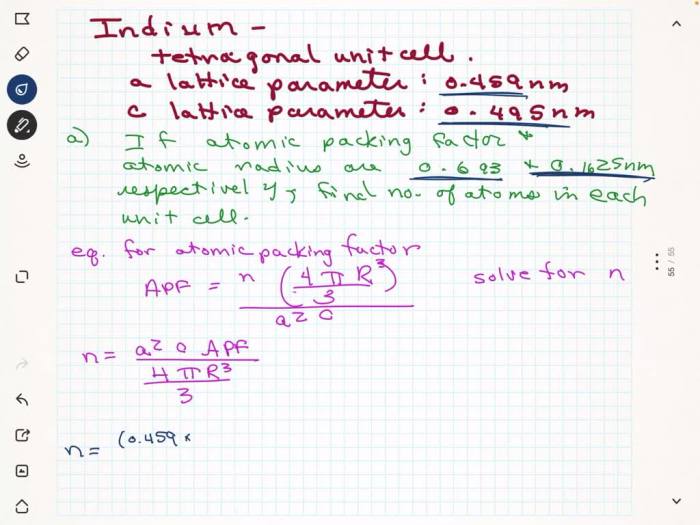 Indium -
tetragonal unit cell.
a lattice parameter: 0.459nm
c lattice parameter: 0.495nm
a) If atomic packing factor +
atomic radius are 0.693 + 0.1625nm
respectively, find no. of atoms in each
unit cell.
eq. for atomic packing factor
APF = n (4πR³/3) / a² c solve for n
n = a² c APF / (4πR³/3)
n = (0.459 ×
55 / 55